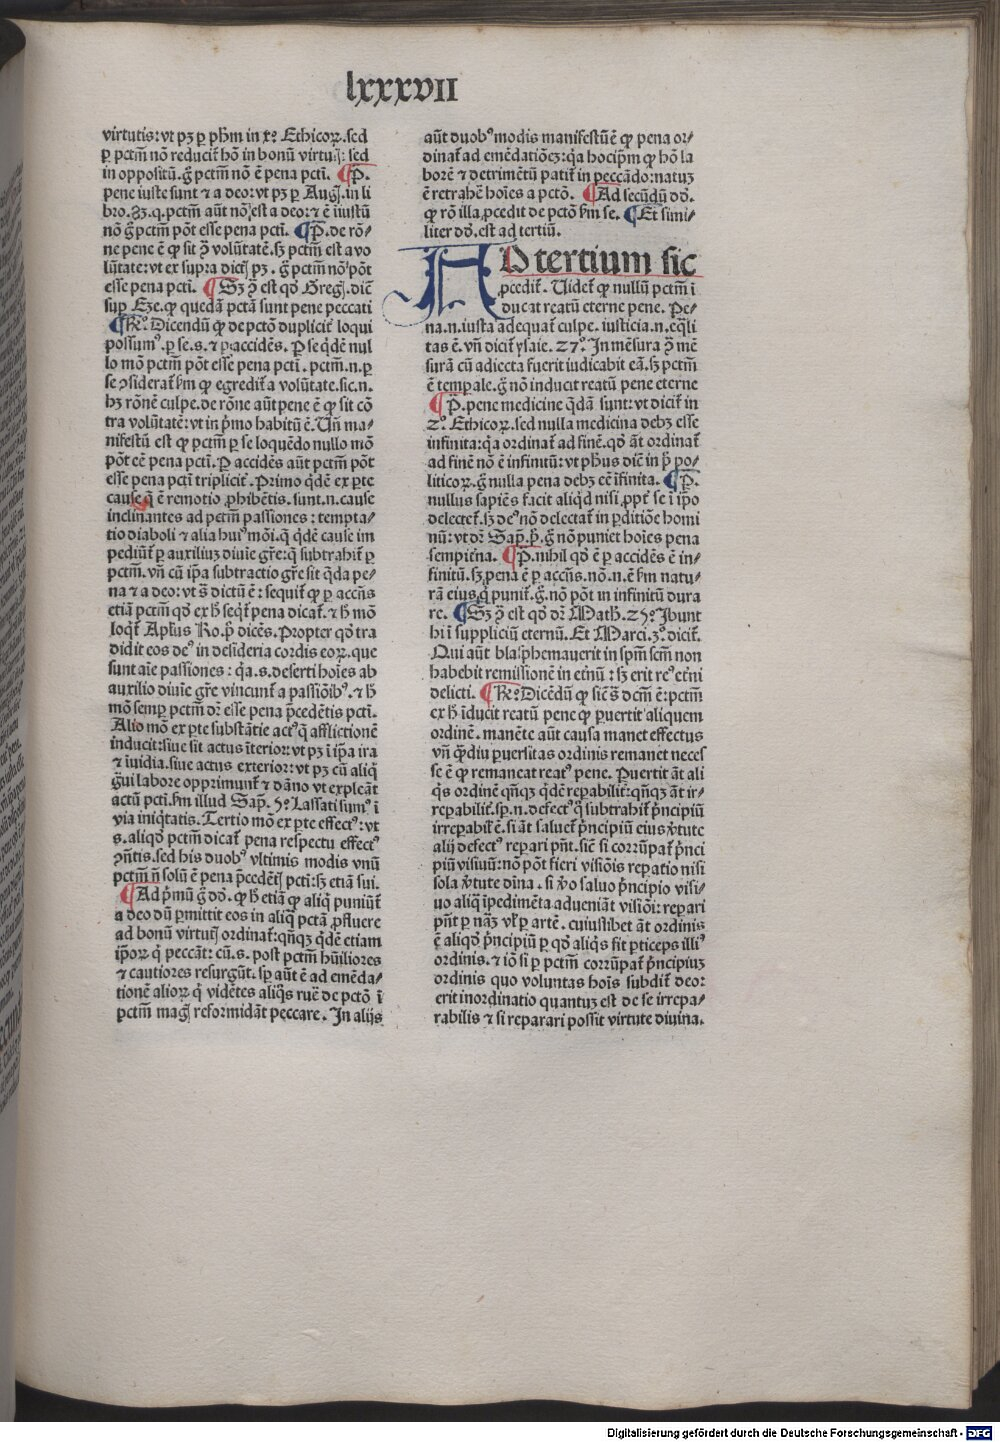 lxxxvII
virtutis: vt pꝫ ꝑ pħm in x° Ethicoꝝ. sed
ꝑ pctm̄ nō reducit̄ hō in bonū virtutꝭ: sed
in oppositū. g̊ pctm̄ nō ē pena pcti. ¶ P̄.
pene iuste sunt ⁊ a deo: vt pꝫ ꝑ Augꝭ. in li
bro. 83. q. pctm̄ aūt nō est a deo: ⁊ ē iiustū
nō g̊ pctm̄ pōt esse pena pcti. ¶ P̄. de rō-
ne pene ē ꝙ sit ꝯ̄ volūtatē. sꝫ pctm̄ est a vo
lūtate: vt ex supra dictꝭ pꝫ. g̊ pctm̄ nō pōt
esse pena pcti. ¶ Sꝫ ꝯ̄ est qd̓ Gregꝭ. dic̄
sup̄ Eze. ꝙ quedā pctā sunt pene peccati
¶ Rn̄°. Dicendū ꝙ de pctō duplicit̄ loqui
possumꝰ. ꝑ se. s. ⁊ ꝑ accidēs. P se qd̓ē nul
lo mō pctm̄ pōt esse pena pcti. pctm̄. n. ꝑ
se ꝯsiderat̄ ẜm ꝙ egredit̄ a volūtate. sic. n.
hꝫ rōnē culpe. de rōne aūt pene ē ꝙ sit cō
tra volūtatē: vt in p̓mo habitū ē. Vn̄ ma-
nifestū est ꝙ pctm̄ ꝑ se loquēdo nullo mō
pōt eē pena pcti. P accidēs aūt pctm̄ pōt
esse pena pcti triplicit̄. Primo qd̓ē ex ꝑte
cause q̄ ē remotio ꝓhibētis. sunt. n. cause
inclinantes ad pctm̄ passiones: tempta-
tio diaboli ⁊ alia huiꝰmōi. q̄ qd̓ē cause im
pediūt̄ ꝑ auxiliuꝫ diuīe gr̄e: q̄ subtrahit̄ ꝑ
pctm̄. vn̄ cū ip̄a subtractio gr̄e sit q̓da pe-
na ⁊ a deo: vt s̄ dictū ē: sequit̄ ꝙ ꝑ accn̄s
etiā pctm̄ qd̓ ex h̓ seq̓t̄ pena dicat̄. ⁊ h̓ mō
loq̓t̄ Apl̓us Ro. p̓ dicēs. Propter qd̓ tra
didit eos deꝰ in desideria cordis eoꝝ. que
sunt aīe passiones: q̓a. s. deserti hoīes ab
auxilio diuīe gr̄e vincunt̄ a passiōibꝰ. ⁊ h̓
mō semꝑ pctm̄ dr̄ esse pena p̄cedētis pcti.
Alio mō ex ꝑte substātie actꝰ q̄ afflictionē
inducit: siue sit actus īterior: vt pꝫ ī ip̄a ira
⁊ īuidia. siue actus exterior: vt pꝫ cū aliq̓
g̓ui labore opprimunt̄ ⁊ dāno vt expleāt
actū pcti. ẜm illud Sap̄. 5° Lassati sumꝰ ī
via iniq̓tatis. Tertio mō ex ꝑte effectꝰ: vt
s. aliqd̓ pctm̄ dicat̄ pena respectu effectꝰ
ꝯn̄tis. sed his duobꝰ vltimis modis vnū
pctm̄ n̄ solū ē pena p̄cedētꝭ pcti: sꝫ etiā sui.
¶ Ad p̓mū g̊ dd̓. ꝙ h̓ etiā ꝙ aliq̓ puniūt̄
a deo dū ꝑmittit eos in aliq̓ pctā ꝓfluere
ad bonū virtutꝭ ordinat̄: qn̄qꝫ qd̓ē etiam
ip̄oꝝ q̓ peccāt: cū. s. post pctm̄ hūiliores
⁊ cautiores resurgūt. sp̄ aūt ē ad emēda-
tionē alioꝝ q̓ vidētes aliq̓s ruē de pctō ī
pctm̄ magꝭ reformidāt peccare. In alijs
aūt duobꝰ modis manifestū ē ꝙ pena or-
dinat̄ ad emēdatiōeꝫ: q̓a hoc ip̄m ꝙ hō la
borē ⁊ detrimētū patit̄ in peccādo: natuꝫ
ē retrahē hoīes a pctō. ¶ Ad secūdū dd̓.
ꝙ rō illa ꝓcedit de pctō ẜm se. ¶ Et simi-
liter dd̓. est ad tertiū.
AD tertium sic
ꝓcedit̄. Videt̄ ꝙ nullū pctm̄ ī
ducat reatū eterne pene. Pe-
na. n. iusta adequat̄ culpe. iusticia. n. eq̓li
tas ē. vn̄ dicit̄ ysaie. 27°. In mēsura ꝯ̄ mē
surā cū adiecta fuerit iudicabit eā. sꝫ pctm̄
ē temꝑale. g̊ nō inducit reatū pene eterne
¶ P̄. pene medicine q̓dā sunt: vt dicit̄ in
2° Ethicoꝝ. sed nulla medicina debꝫ esse
infinita: q̓a ordinat̄ ad finē. qd̓ āt ordinat̄
ad finē nō ē infinitū: vt ph̓us dic̄ in p̓ po-
liticoꝝ. g̊ nulla pena debꝫ eē īfinita. ¶ P̄.
nullus sapiēs facit aliq̓d nisi ꝓpt̄ se ī ip̄o
delectet̄. sꝫ deꝰ nō delectat̄ in ꝑditiōe homi
nū: vt dr̄ Sap̄. p̓. g̊ nō puniet hoīes pena
sempit̄na. ¶ P̄. nihil qd̓ ē ꝑ accidēs ē in-
finitū. sꝫ pena ē ꝑ accn̄s. nō. n. ē ẜm natu-
rā eius q̓ punit̄. g̊. nō pōt in infinitū dura
re. ¶ Sꝫ ꝯ̄ est qd̓ dr̄ Math̓. 25° Ibunt
hi ī suppliciū eternū. Et Marci. 3°. dicit̄.
Qui aūt blasphemauerit in sp̄m sc̄m non
habebit remissionē in et̄nū: sꝫ erit reꝰ et̄ni
delicti. ¶ Rn̄° Dicēdū ꝙ sic̄ s̄ dc̄m ē: pctm̄
ex h̓ īducit reatū pene ꝙ ꝑuertit aliquem
ordinē. manēte aūt causa manet effectus
vn̄ q̓ꝫdiu ꝑuersitas ordinis remanet neces
se ē ꝙ remaneat reatꝰ pene. Puertit āt ali
q̓s ordinē qn̄qꝫ qd̓ē reꝑabilit̄: qn̄qꝫ āt ir-
reꝑabilit̄. sp̄. n. defectꝰ q̓ subtrahit̄ p̓ncipiū
irreꝑabil̓ ē. si āt saluet̄ p̓ncipiū eius v̓tute
alij defectꝰ repari pn̄t. sic̄ si corrūpat̄ p̓nci
piū visiuū: nō pōt fieri visiōis reꝑatio nisi
sola v̓tute dīna. si v̓o saluo p̓ncipio visi-
uo aliq̓ īpedimēta adueniāt visiōi: reꝑari
pn̄t ꝑ nāꝫ vl̓ ꝑ artē. cuiuslibet āt ordinis
ē aliqd̓ p̓ncipiū ꝑ qd̓ aliq̓s fit ꝑticeps illiꝰ
ordinis. ⁊ iō si ꝑ pctm̄ corrūpat̄ p̓ncipiuꝫ
ordinis quo voluntas hoīs subdit̄ deo:
erit inordinatio quantuꝫ est de se irrepa-
rabilis ⁊ si reparari possit virtute diuina.
Digitalisierung gefördert durch die Deutsche Forschungsgemeinschaft - DFG